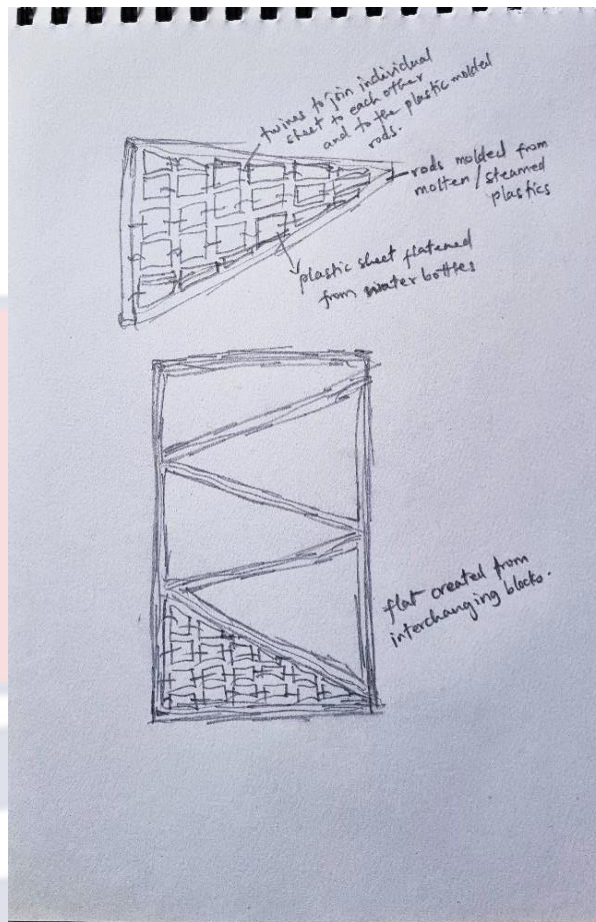 twines to join individual
sheet to each other
and to the plastic molded
rods.
rods molded from
molten / steamed
plastics
plastic sheet flattened
from water bottles
flat created from
interchanging blocks.